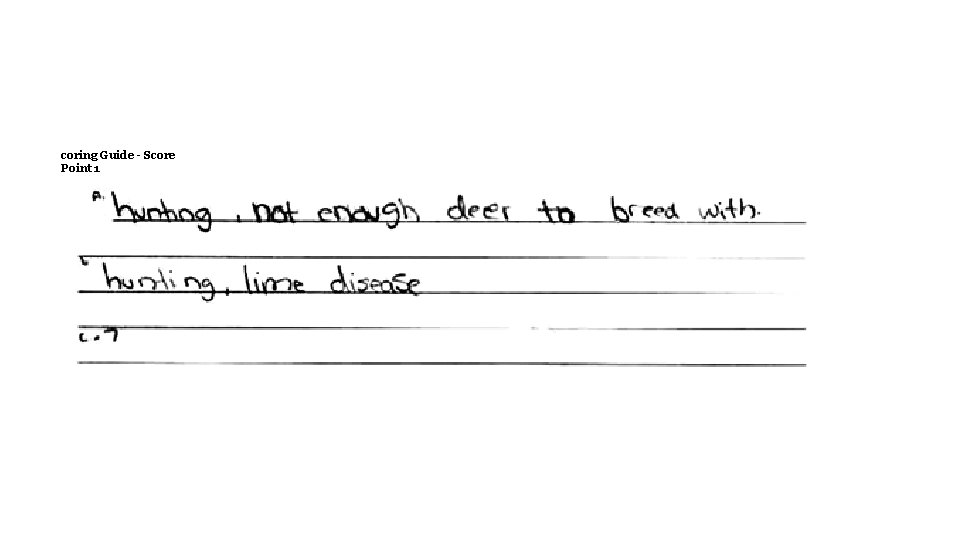 coring Guide - Score
Point 1
A. hunting, not enough deer to breed with.
b hunting, lime disease
c. ?